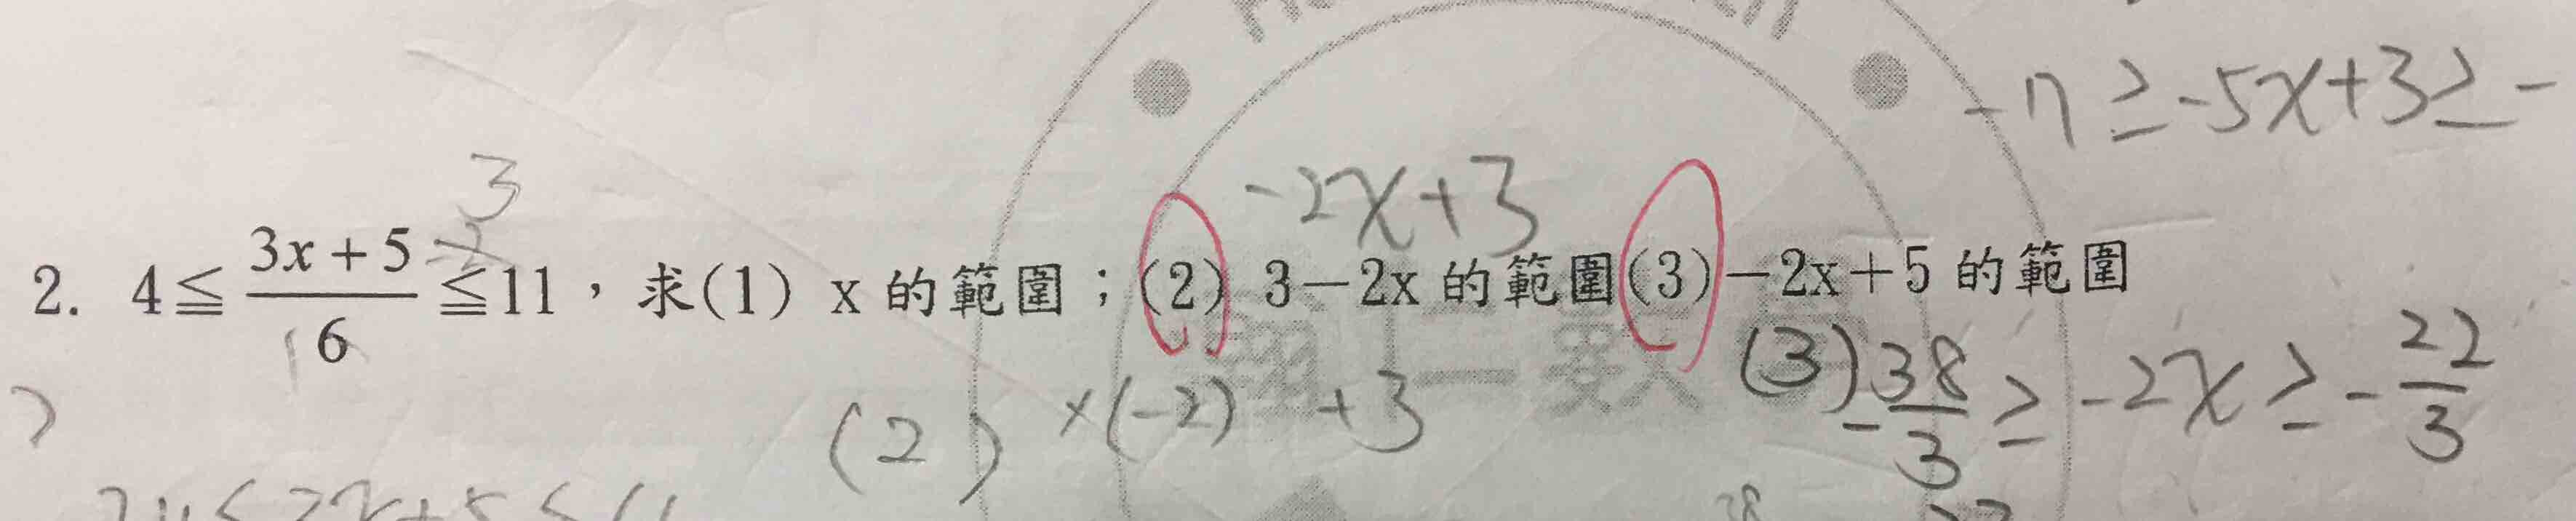 -17 ≥ -5x+3 ≥ -
3
-2x+3
2. 4≦(3x+5)/6≦11，求(1) x 的範圍；(2) 3－2x 的範圍(3)－2x＋5 的範圍
(2) ×(-2) +3
(3) -38/3 ≥ -2x ≥ -22/3